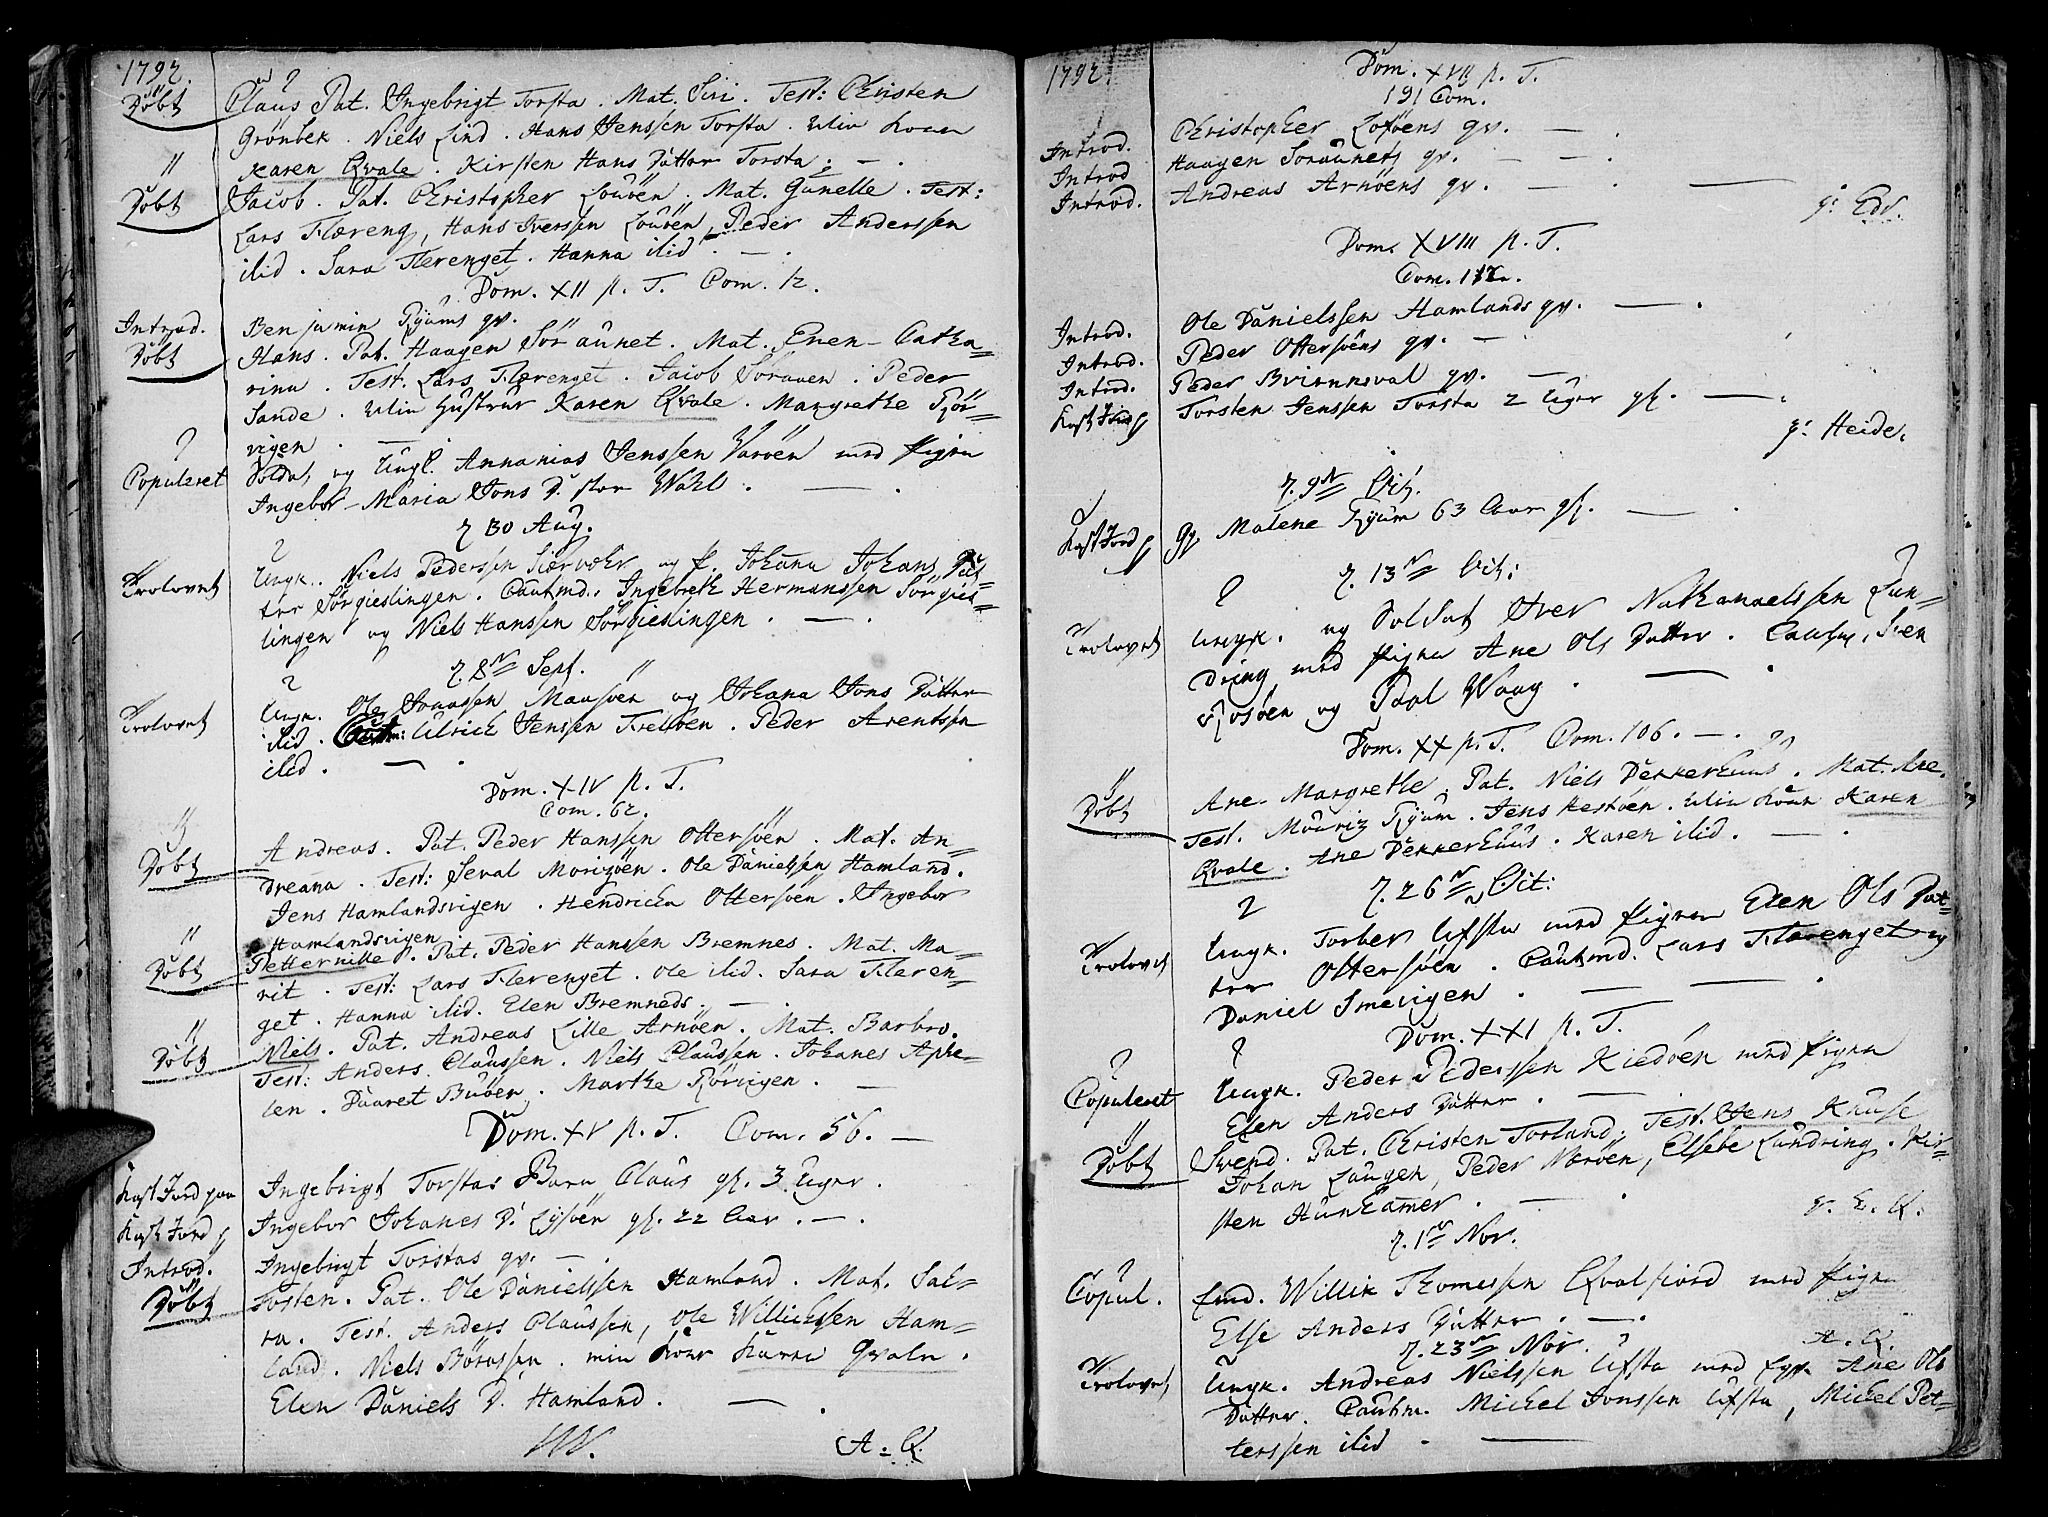 1792.
Döbt Claus Pat. Ingebrigt Torsta. Mat. Siri. Test: Christen
Grönbek. Niels Lind. Hans Jenssen Torsta. Min Kone
Karen Qvale. Kirsten Hans Datter Torsta. —.
Döbt Jacob. Pat. Christopher Louöen. Mat. Gunelle. Test:
Lars Flæreng, Hans Iverssen Louöen, Peder Anderssen
ibid. Sara Flerenget. Hanna ibid. —.
Dom. XII p. T. Com. 12.
Introd. Benjamin Ryums qv.
Döbt Hans. Pat. Haagen Söraunet. Mat. Enen-Catha=
rina. Test. Lars Flærenget. Jacob Söraunen. Peder
Sande. Min Hustrue Karen Qvale. Margrethe Rör=
vigen. —
Copuleret Soldat og Ungk. Annanias Jenssen Varöen med Pigen
Ingebor-Maria Jons D. stor Wahl. —.
d. 30 Aug.
Trolovet Ungk. Niels Pederssen Siærvær og p. Johana Johans Dat=
ter Sörgieslingen. Cautmd. Ingebreth Hermanssen Sörgies=
lingen og Niels Hanssen Sörgieslingen. —.
d. 8de Sept.
Trolovet Ungk. Ole Joaassen Maasöen og Johana Jons Datter
ibid. Ulrich Jenssen Trelöen. Peder Arentsen
ibid. —.
Dom. XIV p. T.
Com. 62.
Döbt Andreas. Pat. Peder Hanssen Ottersöen. Mat. An=
dreana. Test: Seval Morizöen. Ole Danielssen Hamland.
Jens Hamlandsvigen. Hendricha Ottersöen. Ingebor
Hamlandsvigen.
Döbt Petternille. Pat. Peder Hanssen Bremnes. Mat. Ma=
rit. Test: Lars Flerenget. Ole ibid. Sara Fleren=
get. Hanna ibid. Elen Bremneds. —.
Döbt Niels. Pat. Andreas Lille Arnöen. Mat. Barbro.
Test: Anders Claussen. Niels Claussen. Johanes Aple=
len. Daaret Buöen. Marthe Rörvigen. —
Dom. XV p. T. Com. 56. —
Kast Jord paa Ingebrigt Torstas Barn Claus gl. 3 Uger.
Kast Jord p Ingebor Johanes D. Lysöen gl. 22 Aar. —.
Introd. Ingebrigt Torstas qv. —.
Döbt Torsten. Pat. Ole Danielssen Hamland. Mat. Sal=
ra. Test. Anders Claussen, Ole Willichssen Ham=
land. Niels Börussen. min Kone Karen Qvale.
Elen Daniels D. Hamland. —.
A. Q.
1792.
Dom. XVII p. T.
191 Com.
Introd. Christopher Loföens qv. —.
Introd Haagen Söraunets qv. —.
Introd. Andreas Arnöens qv. —. —
Dom. XVIII p. T.
Introd. Ole Danielssen Hamlands qv. —.
Introd. Peder Ottersöens qv. —.
Introd. Peder Bvirnnsval qv. —
Kast Jord p Torsten Jenssen Torsta 2 Uger gl. —.
p: Heide.
d. 9de Oct.
Kast Jord p Malene Ryum 63 Aar gl. —.
d. 13de Oct:
Trolovet Ungk. og Soldat Iver Nathanaelssen Lun=
dring med Pigen Ane Ols Datter. Iven
Rosöen og Paal Waag. —.
Dom. XX p. T. Com. 106. —.
Döbt Ane-Margrethe. Pat. Niels Dekkerhuus. Mat. Ane.
Test. Mouriz Ryum. Jens Hestöen. Min Kone Karen
Qvale. Ane Dekkerhuus. Karen ibid. —.
d. 26de Oct:
Trolovet Ungk. Torber Ufsta med Pigen Elen Ols Dat=
ter Ottersöen. Cautmd. Lars Flarenget og
Daniel Smevigen. — —.
Dom. XXI p. T.
Copuleret Ungk. Peder Pederssen Kiedöen med Pigen
Elen Anders Datter. —.
Döbt Svend. Pat. Christen Torland. Test. Jens Kruse
Johan Laugen, Peder Næröen, Elsebe Lundring. Kir=
sten Hunhamer. —.
d. 1de Nov.
Copul. Emd. Willik Thomessen Qvalfiord med Pigen
Else Anders Datter. —.
d. 23de Nov. A. Q.
Trolovet Ungk. Andreas Nielssen Ufsta med Ane Ols
Datter. Cautm. Michel Jonssen Ufsta, Michel Pet=
terssen ibid. —